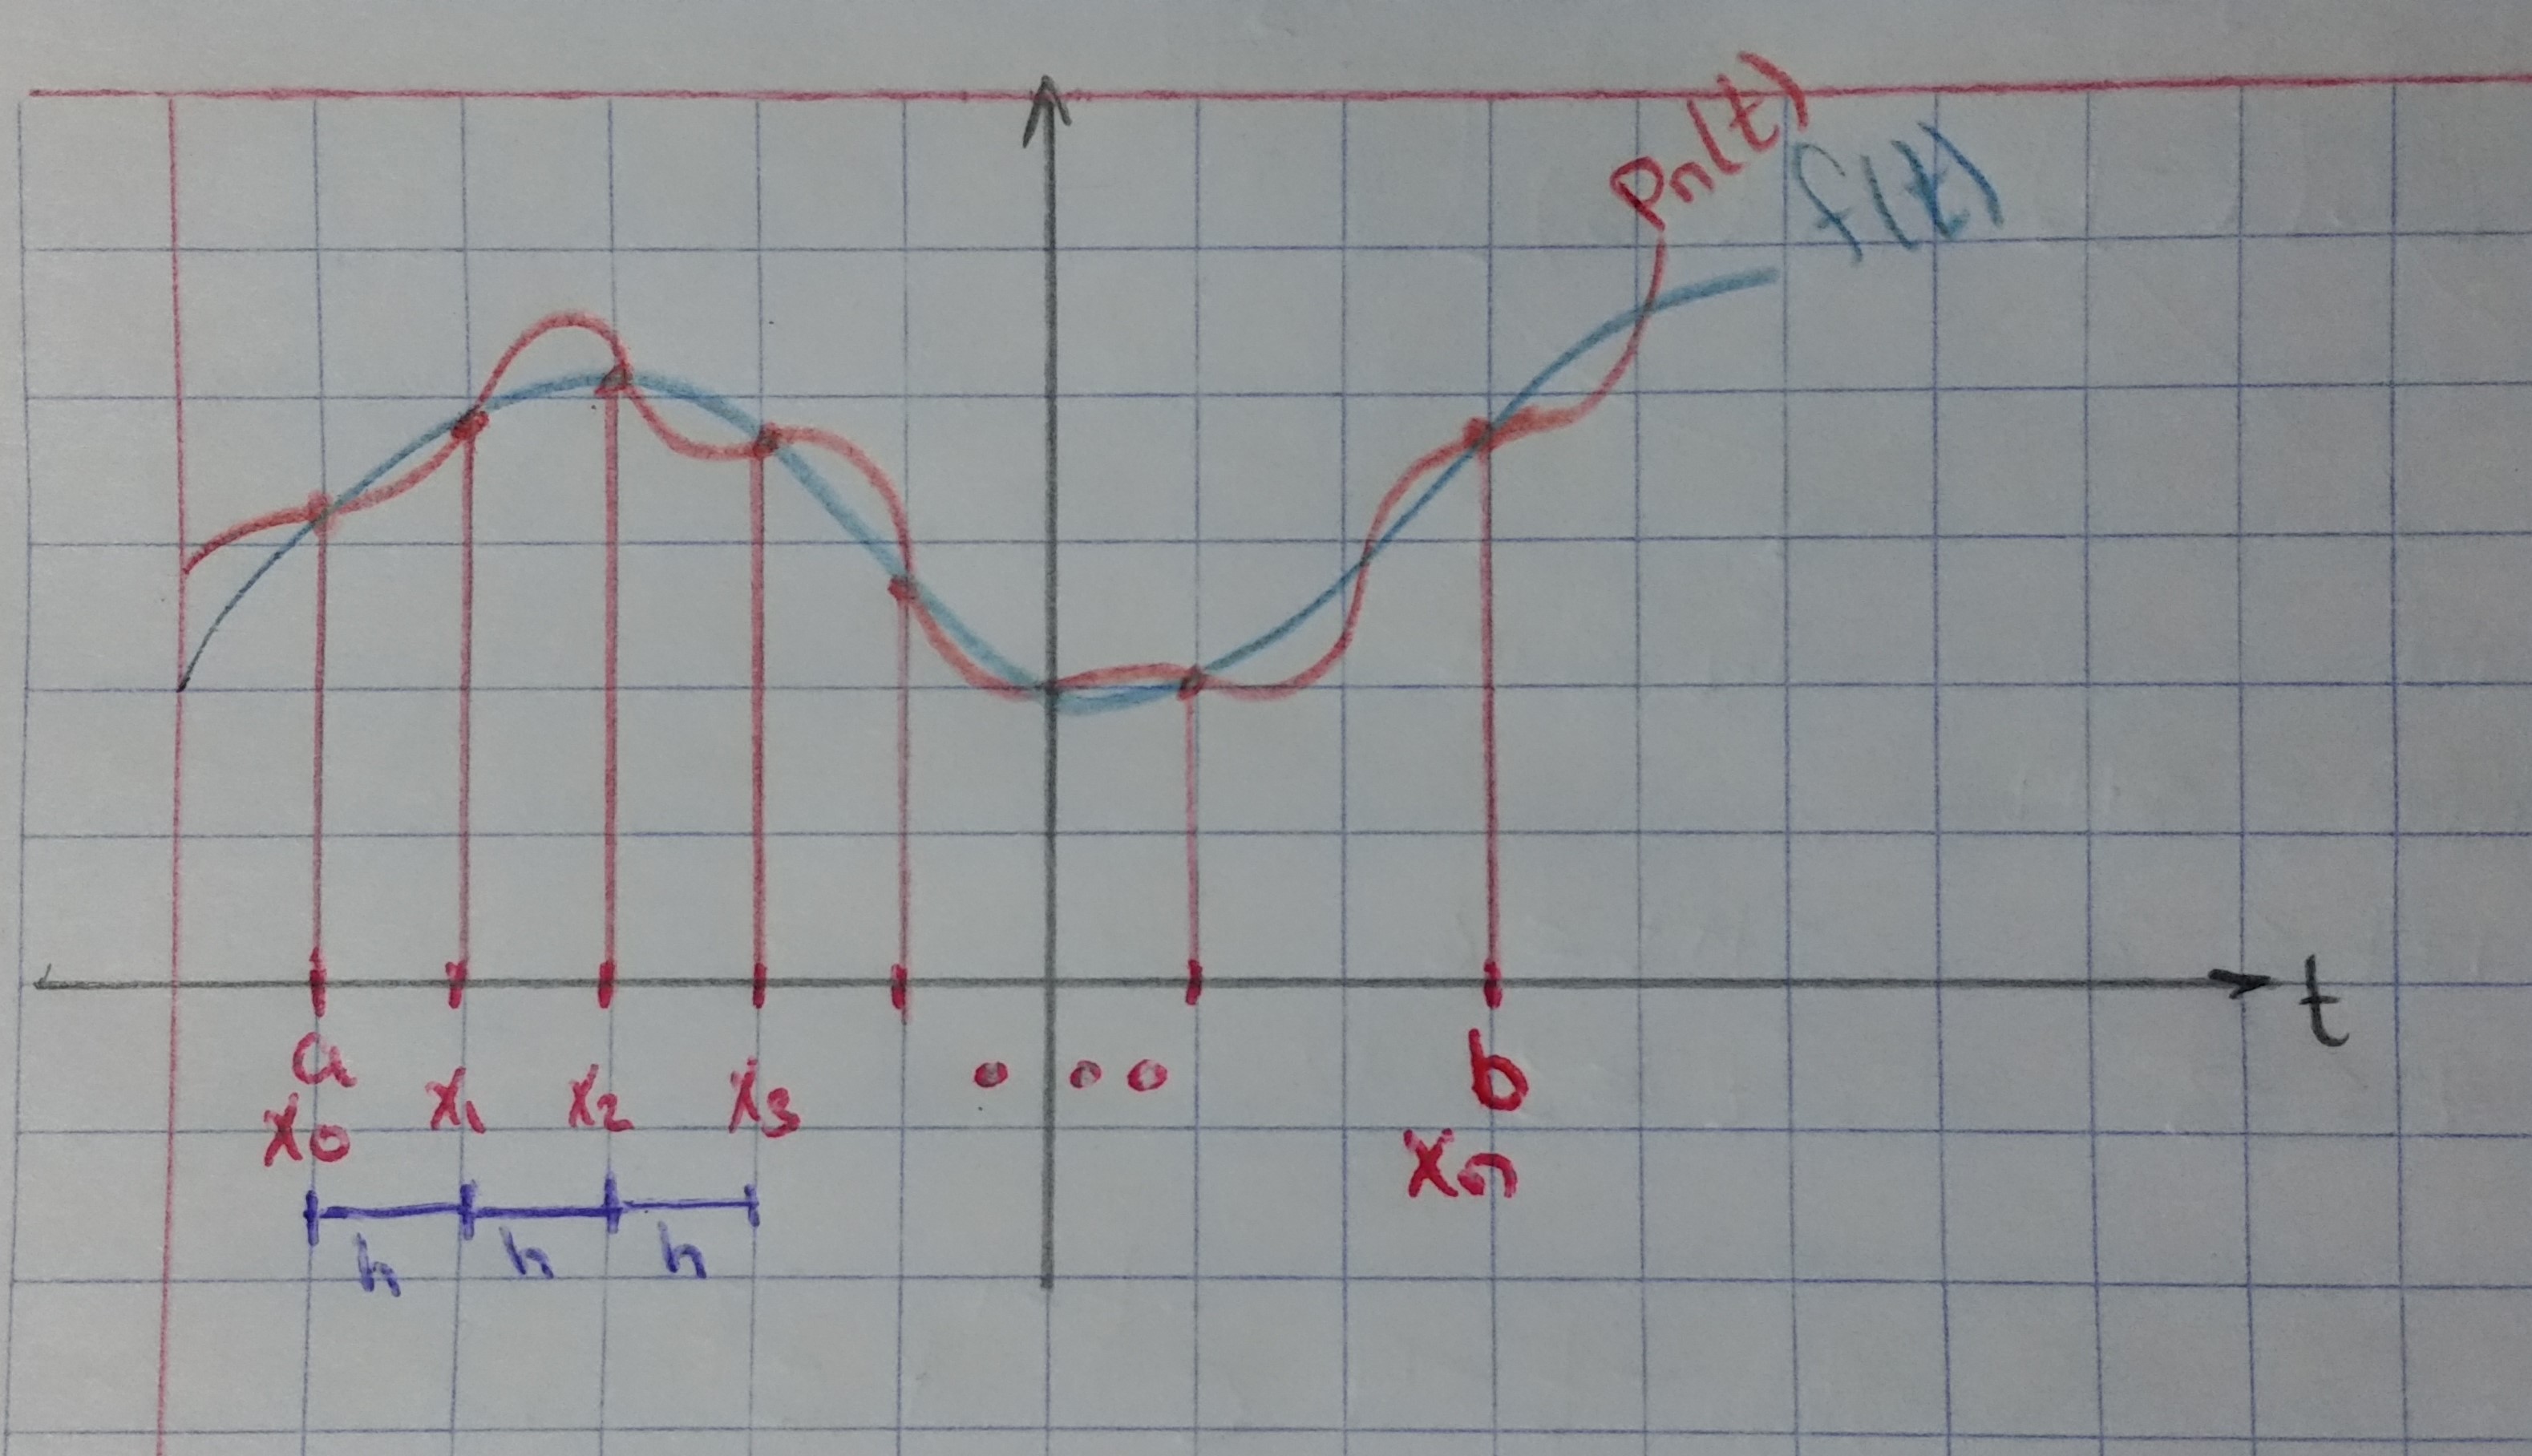 Pn(t)
f(t)
t
a b
x0 x1 x2 x3 ... xn
h h h